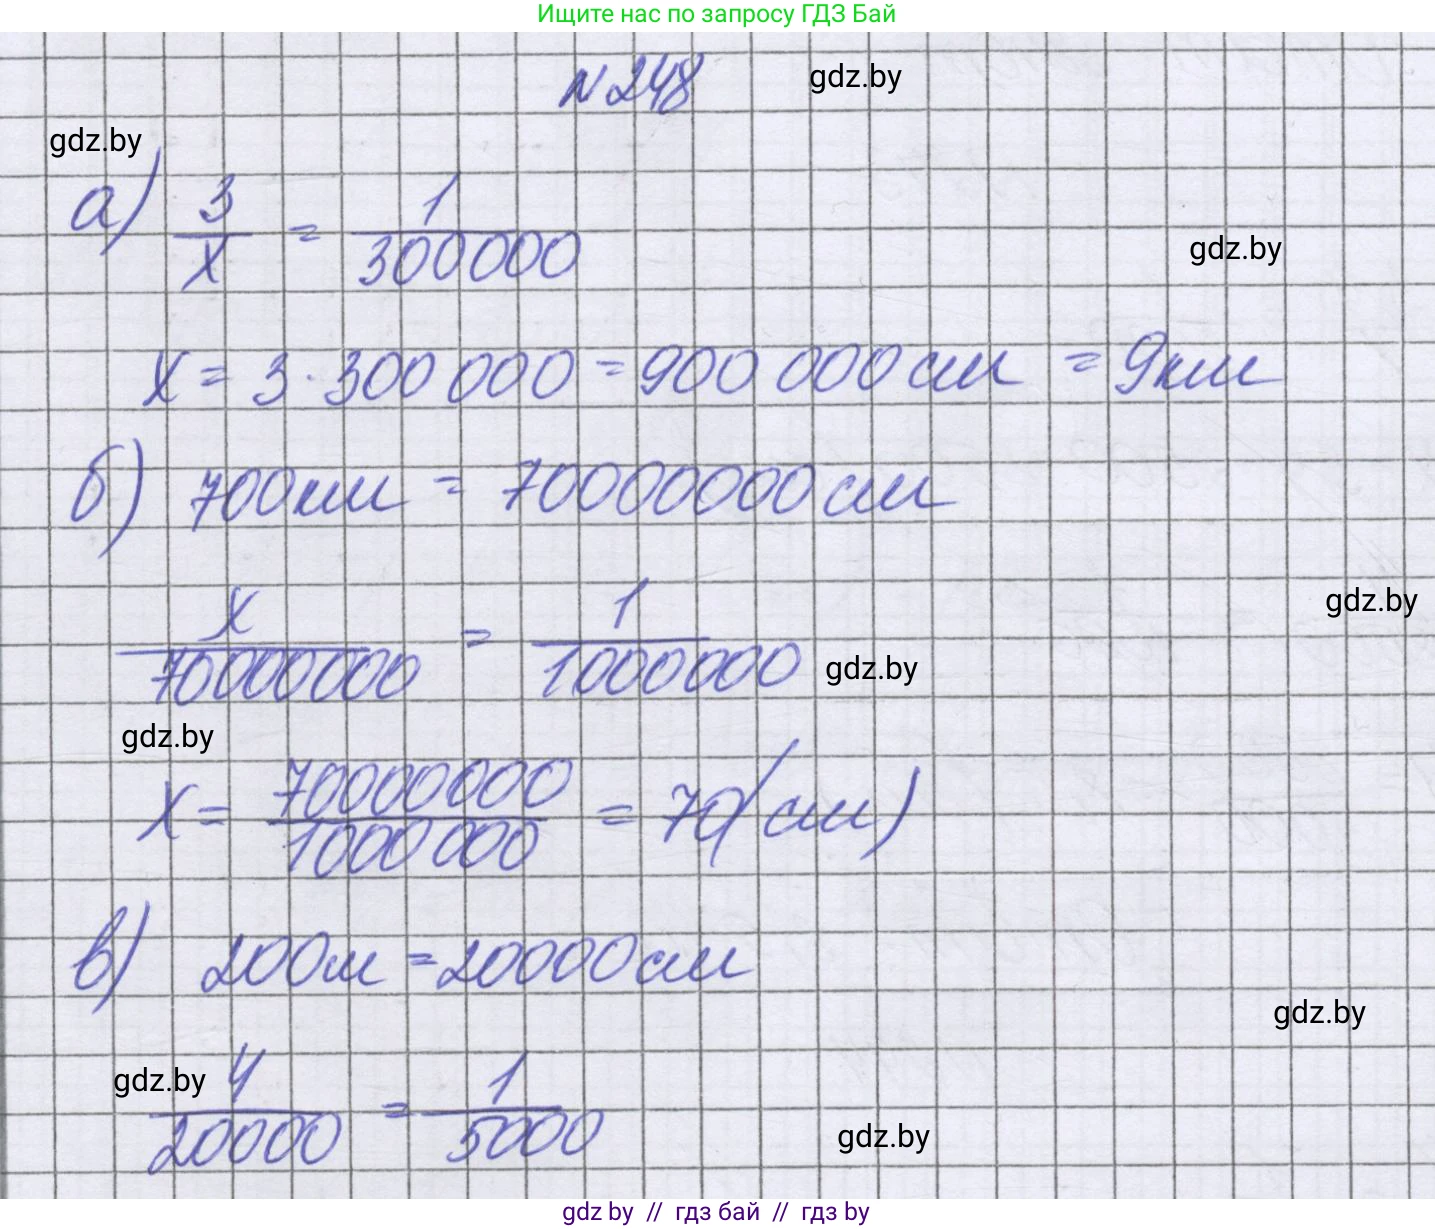 Ищите нас по запросу ГДЗ Бай
N 248
gdz.by
gdz.by
а) 3/x = 1/300 000
gdz.by
x = 3 · 300 000 = 900 000 см = 9 км
б) 700 км = 70000000 см
gdz.by
x/70000000 = 1/1000000
gdz.by
gdz.by
x = 70000000/1000000 = 70 (см)
в) 200 м = 20000 см
gdz.by
gdz.by
4/20000 = 1/5000
gdz.by
gdz by // гдз бай // гдз by